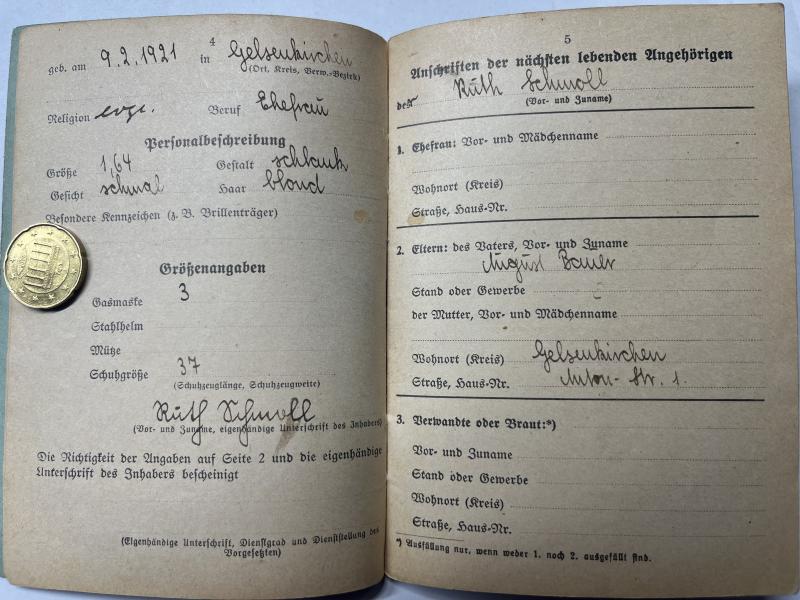 4
geb. am 9.2.1921 in Gelsenkirchen
(Ort, Kreis, Verw.-Bezirk)
Religion evge. Beruf Ehefrau
Personalbeschreibung
Größe 1,64 Gestalt schlank
Gesicht schmal Haar blond
Besondere Kennzeichen (z. B. Brillenträger)
Größenangaben
Gasmaske 3
Stahlhelm
Mütze
Schuhgröße 37
(Schuhzeuglänge, Schuhzeugweite)
Ruth Schmoll
(Vor- und Zuname, eigenhändige Unterschrift des Inhabers)
Die Richtigkeit der Angaben auf Seite 2 und die eigenhändige
Unterschrift des Inhabers bescheinigt
(Eigenhändige Unterschrift, Dienstgrad und Dienststellung des
Vorgesetzten)
5
Anschriften der nächsten lebenden Angehörigen
der Ruth Schmoll
(Vor- und Zuname)
1. Ehefrau: Vor- und Mädchenname
Wohnort (Kreis)
Straße, Haus-Nr.
2. Eltern: des Vaters, Vor- und Zuname
August Bauer
Stand oder Gewerbe
der Mutter, Vor- und Mädchenname
Wohnort (Kreis) Gelsenkirchen
Straße, Haus-Nr. Anton-Str. 1.
3. Verwandte oder Braut:*)
Vor- und Zuname
Stand oder Gewerbe
Wohnort (Kreis)
Straße, Haus-Nr.
*) Ausfüllung nur, wenn weder 1. noch 2. ausgefüllt sind.